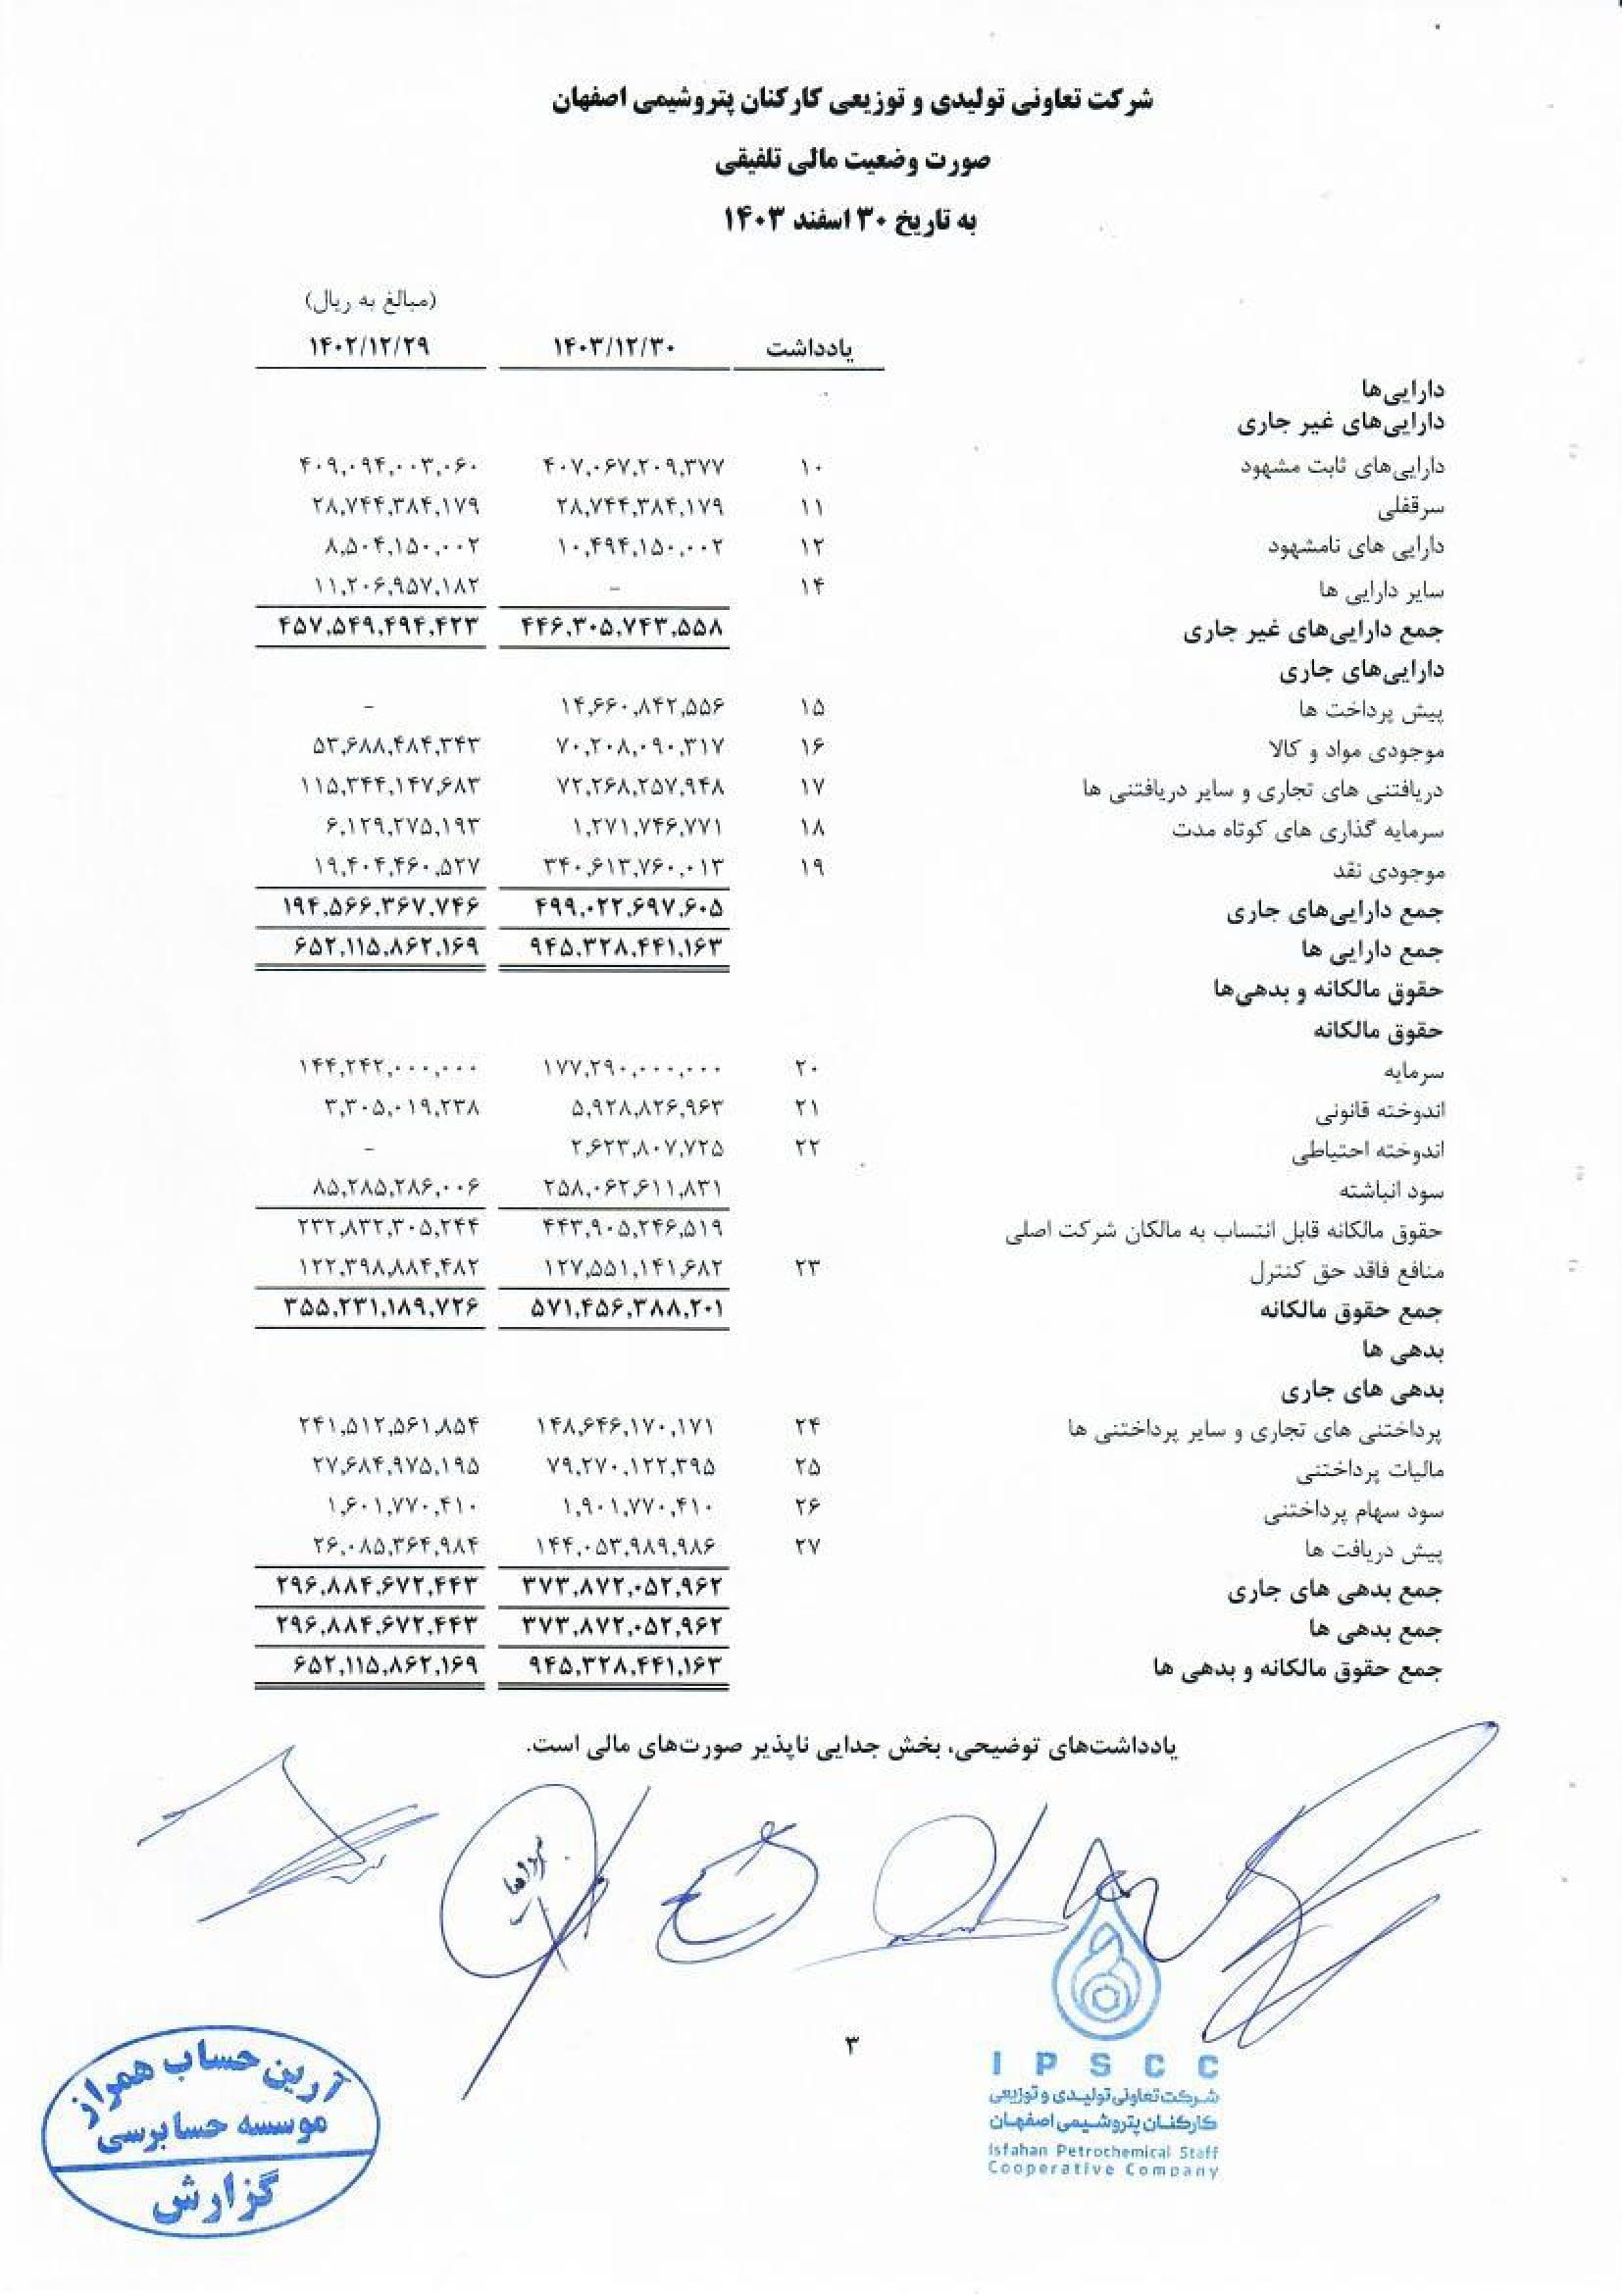 شرکت تعاونی تولیدی و توزیعی کارکنان پتروشیمی اصفهان
صورت وضعیت مالی تلفیقی
به تاریخ ۳۰ اسفند ۱۴۰۳
(مبالغ به ریال)
یادداشت ۱۴۰۳/۱۲/۳۰ ۱۴۰۲/۱۲/۲۹
دارایی‌ها
دارایی‌های غیر جاری
دارایی‌های ثابت مشهود ۱۰ ۴۰۷,۰۶۷,۲۰۹,۳۷۷ ۴۰۹,۰۹۴,۰۰۳,۰۶۰
سرقفلی ۱۱ ۲۸,۷۴۴,۳۸۴,۱۷۹ ۲۸,۷۴۴,۳۸۴,۱۷۹
دارایی های نامشهود ۱۲ ۱۰,۴۹۴,۱۵۰,۰۰۲ ۸,۵۰۴,۱۵۰,۰۰۲
سایر دارایی ها ۱۴ - ۱۱,۲۰۶,۹۵۷,۱۸۲
جمع دارایی‌های غیر جاری ۴۴۶,۳۰۵,۷۴۳,۵۵۸ ۴۵۷,۵۴۹,۴۹۴,۴۲۳
دارایی‌های جاری
پیش پرداخت ها ۱۵ ۱۴,۶۶۰,۸۴۲,۵۵۶ -
موجودی مواد و کالا ۱۶ ۷۰,۲۰۸,۰۹۰,۳۱۷ ۵۳,۶۸۸,۴۸۴,۳۴۳
دریافتنی های تجاری و سایر دریافتنی ها ۱۷ ۷۲,۲۶۸,۲۵۷,۹۴۸ ۱۱۵,۳۴۴,۱۴۷,۶۸۳
سرمایه گذاری های کوتاه مدت ۱۸ ۱,۲۷۱,۷۴۶,۷۷۱ ۶,۱۲۹,۲۷۵,۱۹۳
موجودی نقد ۱۹ ۳۴۰,۶۱۳,۷۶۰,۰۱۳ ۱۹,۴۰۴,۴۶۰,۵۲۷
جمع دارایی‌های جاری ۴۹۹,۰۲۲,۶۹۷,۶۰۵ ۱۹۴,۵۶۶,۳۶۷,۷۴۶
جمع دارایی ها ۹۴۵,۳۲۸,۴۴۱,۱۶۳ ۶۵۲,۱۱۵,۸۶۲,۱۶۹
حقوق مالکانه و بدهی‌ها
حقوق مالکانه
سرمایه ۲۰ ۱۷۷,۲۹۰,۰۰۰,۰۰۰ ۱۴۴,۲۴۲,۰۰۰,۰۰۰
اندوخته قانونی ۲۱ ۵,۹۲۸,۸۲۶,۹۶۳ ۳,۳۰۵,۰۱۹,۲۳۸
اندوخته احتیاطی ۲۲ ۲,۶۲۳,۸۰۷,۷۲۵ -
سود انباشته ۲۵۸,۰۶۲,۶۱۱,۸۳۱ ۸۵,۲۸۵,۲۸۶,۰۰۶
حقوق مالکانه قابل انتساب به مالکان شرکت اصلی ۴۴۳,۹۰۵,۲۴۶,۵۱۹ ۲۳۲,۸۳۲,۳۰۵,۲۴۴
منافع فاقد حق کنترل ۲۳ ۱۲۷,۵۵۱,۱۴۱,۶۸۲ ۱۲۲,۳۹۸,۸۸۴,۴۸۲
جمع حقوق مالکانه ۵۷۱,۴۵۶,۳۸۸,۲۰۱ ۳۵۵,۲۳۱,۱۸۹,۷۲۶
بدهی ها
بدهی های جاری
پرداختنی های تجاری و سایر پرداختنی ها ۲۴ ۱۴۸,۶۴۶,۱۷۰,۱۷۱ ۲۴۱,۵۱۲,۵۶۱,۸۵۴
مالیات پرداختنی ۲۵ ۷۹,۲۷۰,۱۲۲,۳۹۵ ۲۷,۶۸۴,۹۷۵,۱۹۵
سود سهام پرداختنی ۲۶ ۱,۹۰۱,۷۷۰,۴۱۰ ۱,۶۰۱,۷۷۰,۴۱۰
پیش دریافت ها ۲۷ ۱۴۴,۰۵۳,۹۸۹,۹۸۶ ۲۶,۰۸۵,۳۶۴,۹۸۴
جمع بدهی های جاری ۳۷۳,۸۷۲,۰۵۲,۹۶۲ ۲۹۶,۸۸۴,۶۷۲,۴۴۳
جمع بدهی ها ۳۷۳,۸۷۲,۰۵۲,۹۶۲ ۲۹۶,۸۸۴,۶۷۲,۴۴۳
جمع حقوق مالکانه و بدهی ها ۹۴۵,۳۲۸,۴۴۱,۱۶۳ ۶۵۲,۱۱۵,۸۶۲,۱۶۹
یادداشت‌های توضیحی، بخش جدایی ناپذیر صورت‌های مالی است.
۳
IPSCC
شرکت تعاونی تولیدی و توزیعی
کارکنان پتروشیمی اصفهان
Isfahan Petrochemical Staff
Cooperative Company
آرین حساب همراز
موسسه حسابرسی
گزارش